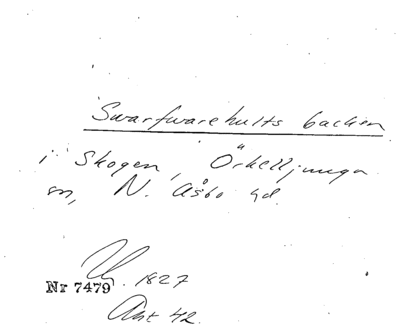 Swarfwarehults backen
i Skogen, Örkelljunga
sn, N. Åsbo hd.
1827
Nr 7479
Akt 42.